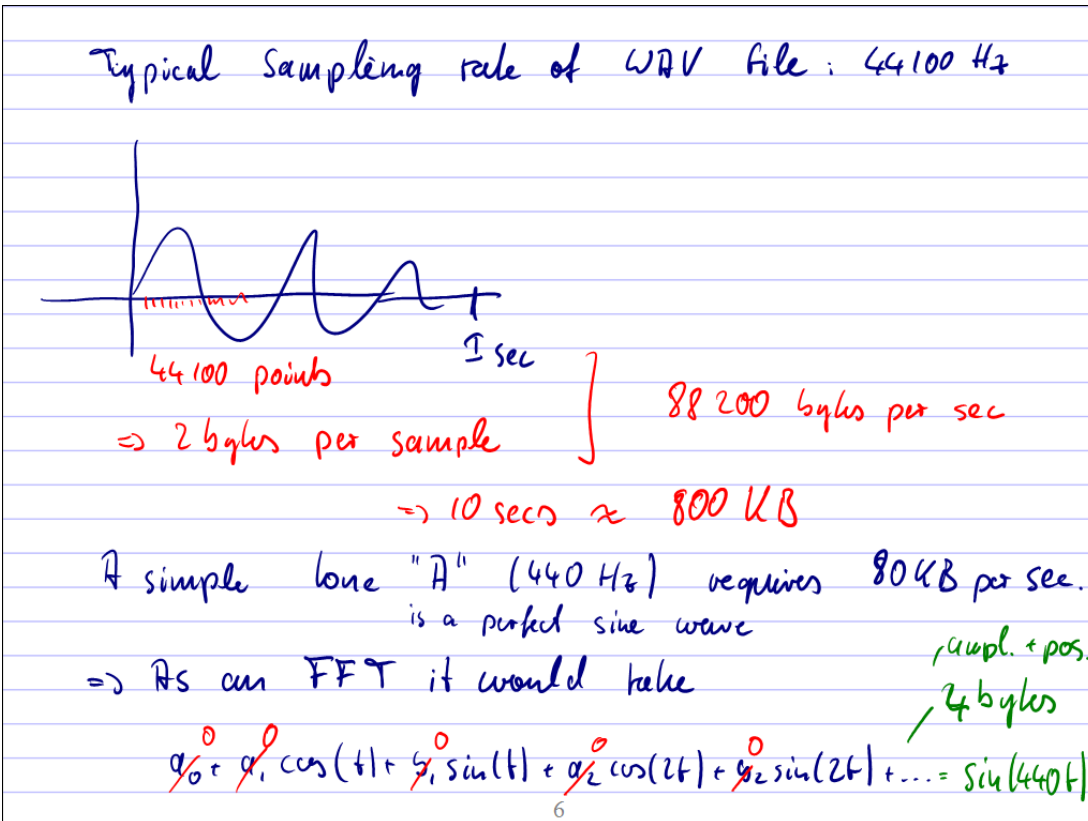 Typical Sampling rate of WAV file: 44100 Hz
1 sec
44100 points
=> 2 bytes per sample
88 200 bytes per sec
=> 10 secs ≈ 800 KB
A simple tone "A" (440 Hz) requires 80 KB per sec.
is a perfect sine wave
ampl. + pos.
=> As an FFT it would take
4 bytes
0 0 0 0 0
a₀ + a₁ cos(t) + b₁ sin(t) + a₂ cos(2t) + b₂ sin(2t) + .... = sin(440t)
6